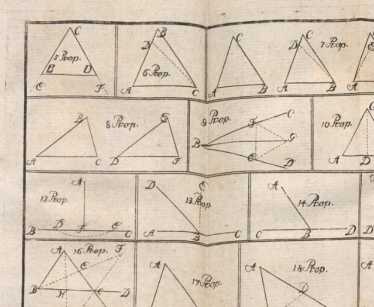 C
5 Prop.
B D
E F
B
D
6 Prop.
A C
C
A B
C
D
7 Prop.
A B
C
A
B
8 Prop.
A C
G
D F
9 Prop.
C
F
B G
E
D
10 Prop.
A D
A
12 Prop.
B D F E C
D
13 Prop.
A B C
A
14 Prop.
C B D
A 16 Prop. F
E
B H C D
A
17 Prop.
A
18 Prop.
D